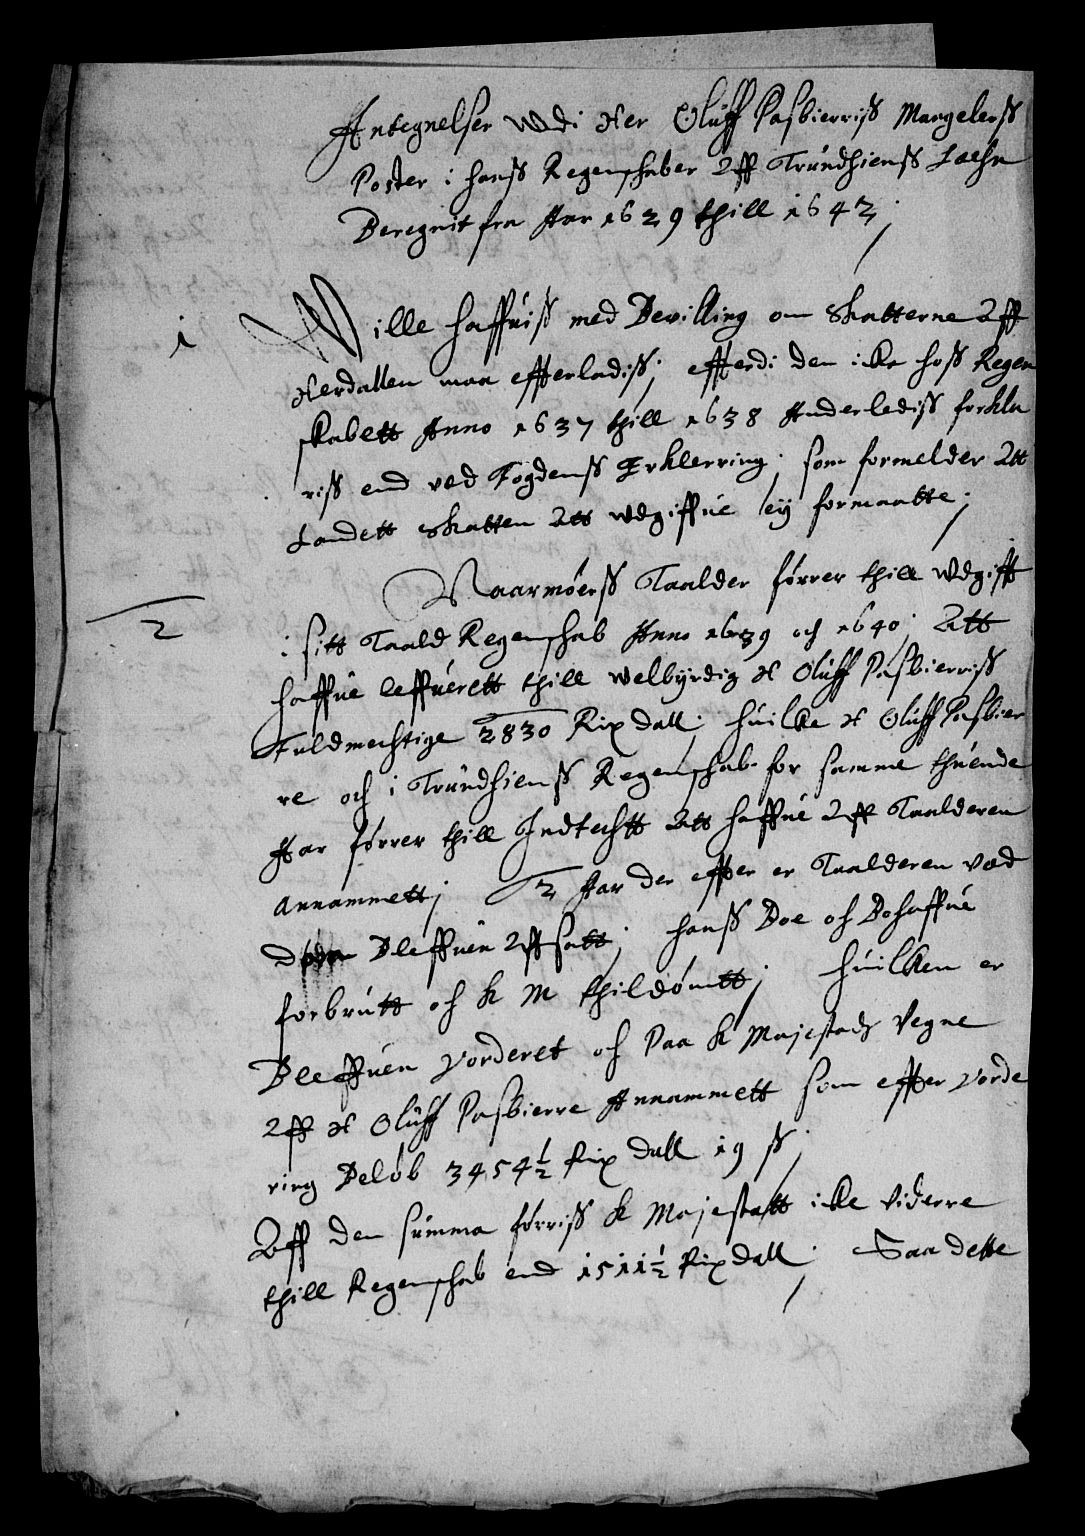 Antegnelser Udi Her Oluff Pasbierriss Mangelerss
Poster i hanss Regenschaber Aff Trundhienss Laehn
Beregnit fra Aar 1629 thill 1642;
1 Wille haffuiss med Bevilling om Skatterne Aff
Herdallen maa efterladiss; efterdi den icke hoss Regen
skabett Anno 1637 thill 1638 Anderlediss forkla
riss end ved Fogdenss Erklerring; som formelder Att
Landett Skatten Att udgiffue ey formaatte;
2 Naarmøerss Taalder førrer thill Udgifft
i sitt Taald Regenschab Anno 1639 och 1640; Att
haffue leffuerett thill welbyrdig H Oluff Pasbierriss
Fuldmechtige 2830 Rixdall; huilke H Oluff Pasbier
re och i Trundhienss Regenschab for samme thuende
Aar førrer thill Indtechtt Att haffue Aff Taalderen
Annammett; 2 Aar der effter er Taalderen ved
døden Bleffuen Affsatt; hanss Boe och Bohaffue
forbrutt och K M thildømtt; huilken er
Bleffuen Vorderet och Paa K Majestads Vegne
Aff H Oluff Pasbierre Annammett som effter Vorde
ring Beløb 3454½ Rixdall 19 ss;
Aff den summa førriss K Majestatt icke viderre
thill Regenschab end 1511½ Rixdall; Saa dette